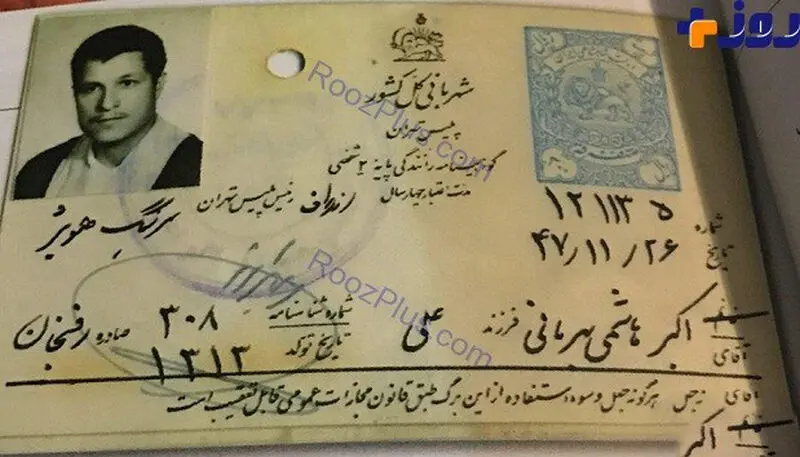 روز+
شهربانی کل کشور
پلیس تهران
گواهینامه رانندگی پایه ۲ شخصی
مدت اعتبار چهار سال
رئیس پلیس تهران
سرهنگ
شماره ۱۲۱۱۳۵
تاریخ ۴۷/۱۱/۲۶
آقای اکبر هاشمی بهرمانی فرزند علی شماره شناسنامه ۳۰۸ صادره رفسنجان
تاریخ تولد ۱۳۱۳
هرگونه جعل و سوء استفاده از این برگ طبق قانون مجازات عمومی قابل تعقیب است
آقای
اکبر
RoozPlus.com
RoozPlus.com